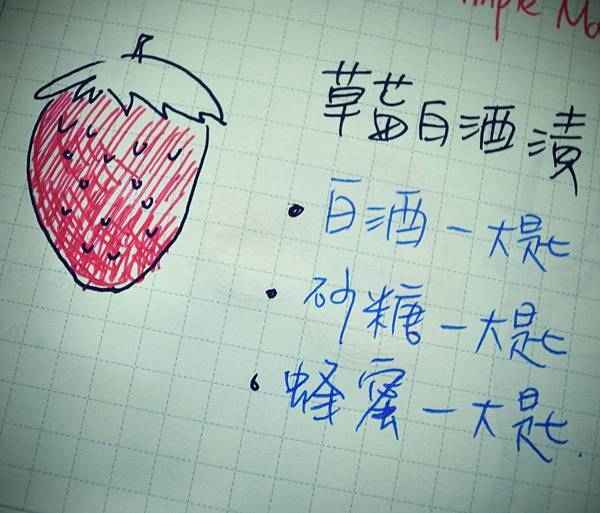 imple Ma
草莓白酒漬
• 白酒一大匙
• 砂糖一大匙
• 蜂蜜一大匙.